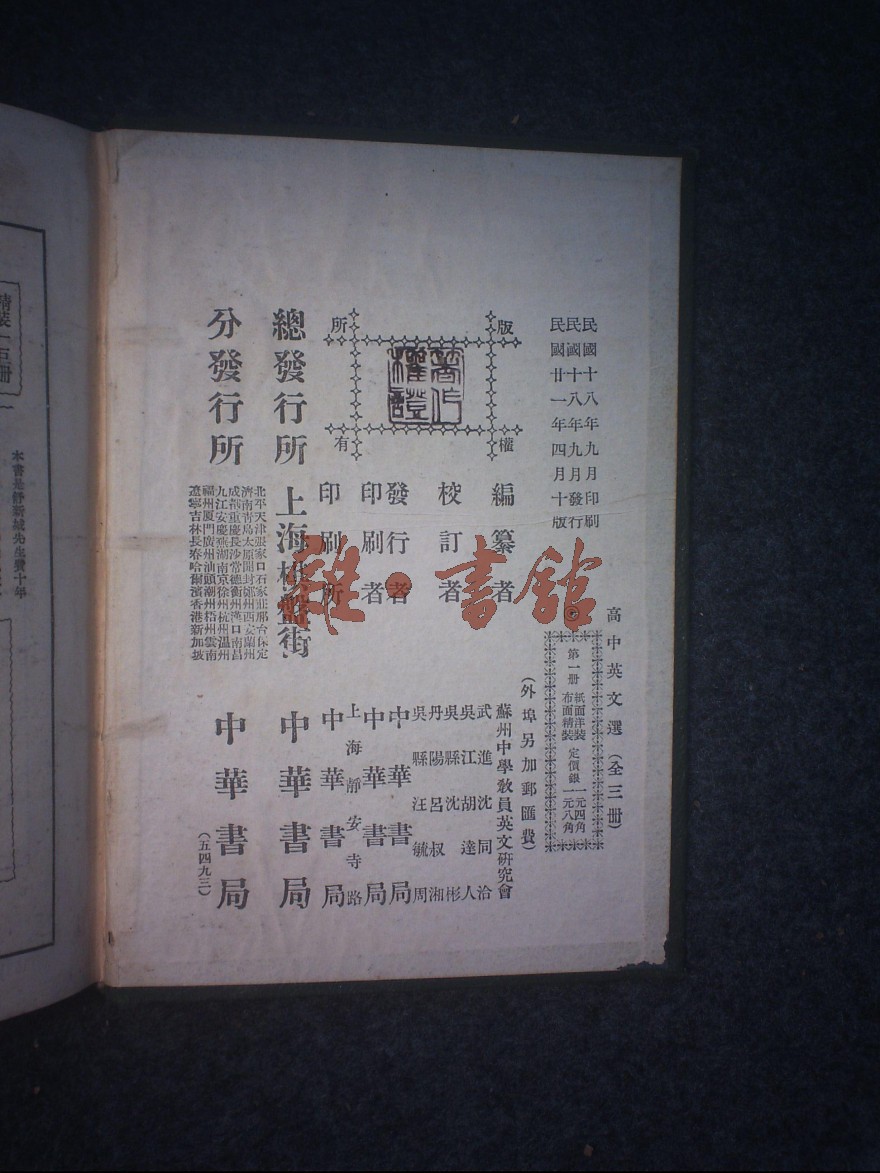 民國十八年九月印刷
民國十八年九月發行
民國廿一年四月十版
高中英文選（全三冊）
第一冊 紙面洋裝 定價銀一元四角
布面精裝 一元八角
（外埠另加郵匯費）
版權所有
著作權證
編纂者 蘇州中學教員英文研究會
校訂者
武進沈同洽
吳江胡達人
吳縣沈彬
丹陽呂叔湘
吳縣汪毓周
發行者 中華書局
印刷者 中華書局
上海靜安寺路
印刷所 中華書局
總發行所 上海棋盤街 中華書局
分發行所
北平天津張家口石家莊邢台保定
濟南青島太原開封鄭州西安蘭州
成都重慶長沙常德衡州漢口南昌
九江安慶蕪湖南京徐州杭州溫州
福州厦門廣州汕頭潮州梧州雲南
遼寧吉林長春哈爾濱香港新加坡
中華書局
（五四九三）
雜·書館
精裝一巨冊
本書是舒新城先生費十年